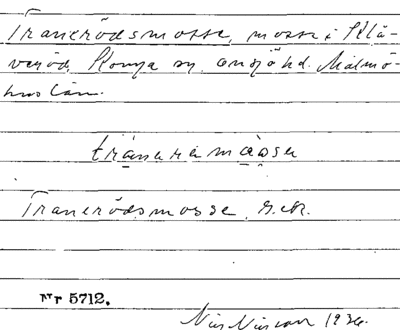 Tranerödsmosse, mosse i Klå-
veröd, Konga sn, Onsjö hd. Malmö-
hus län.
tranera måosen
Tranerödsmosse, G.ek.
Nr 5712.
Nils Nilsson 1934.